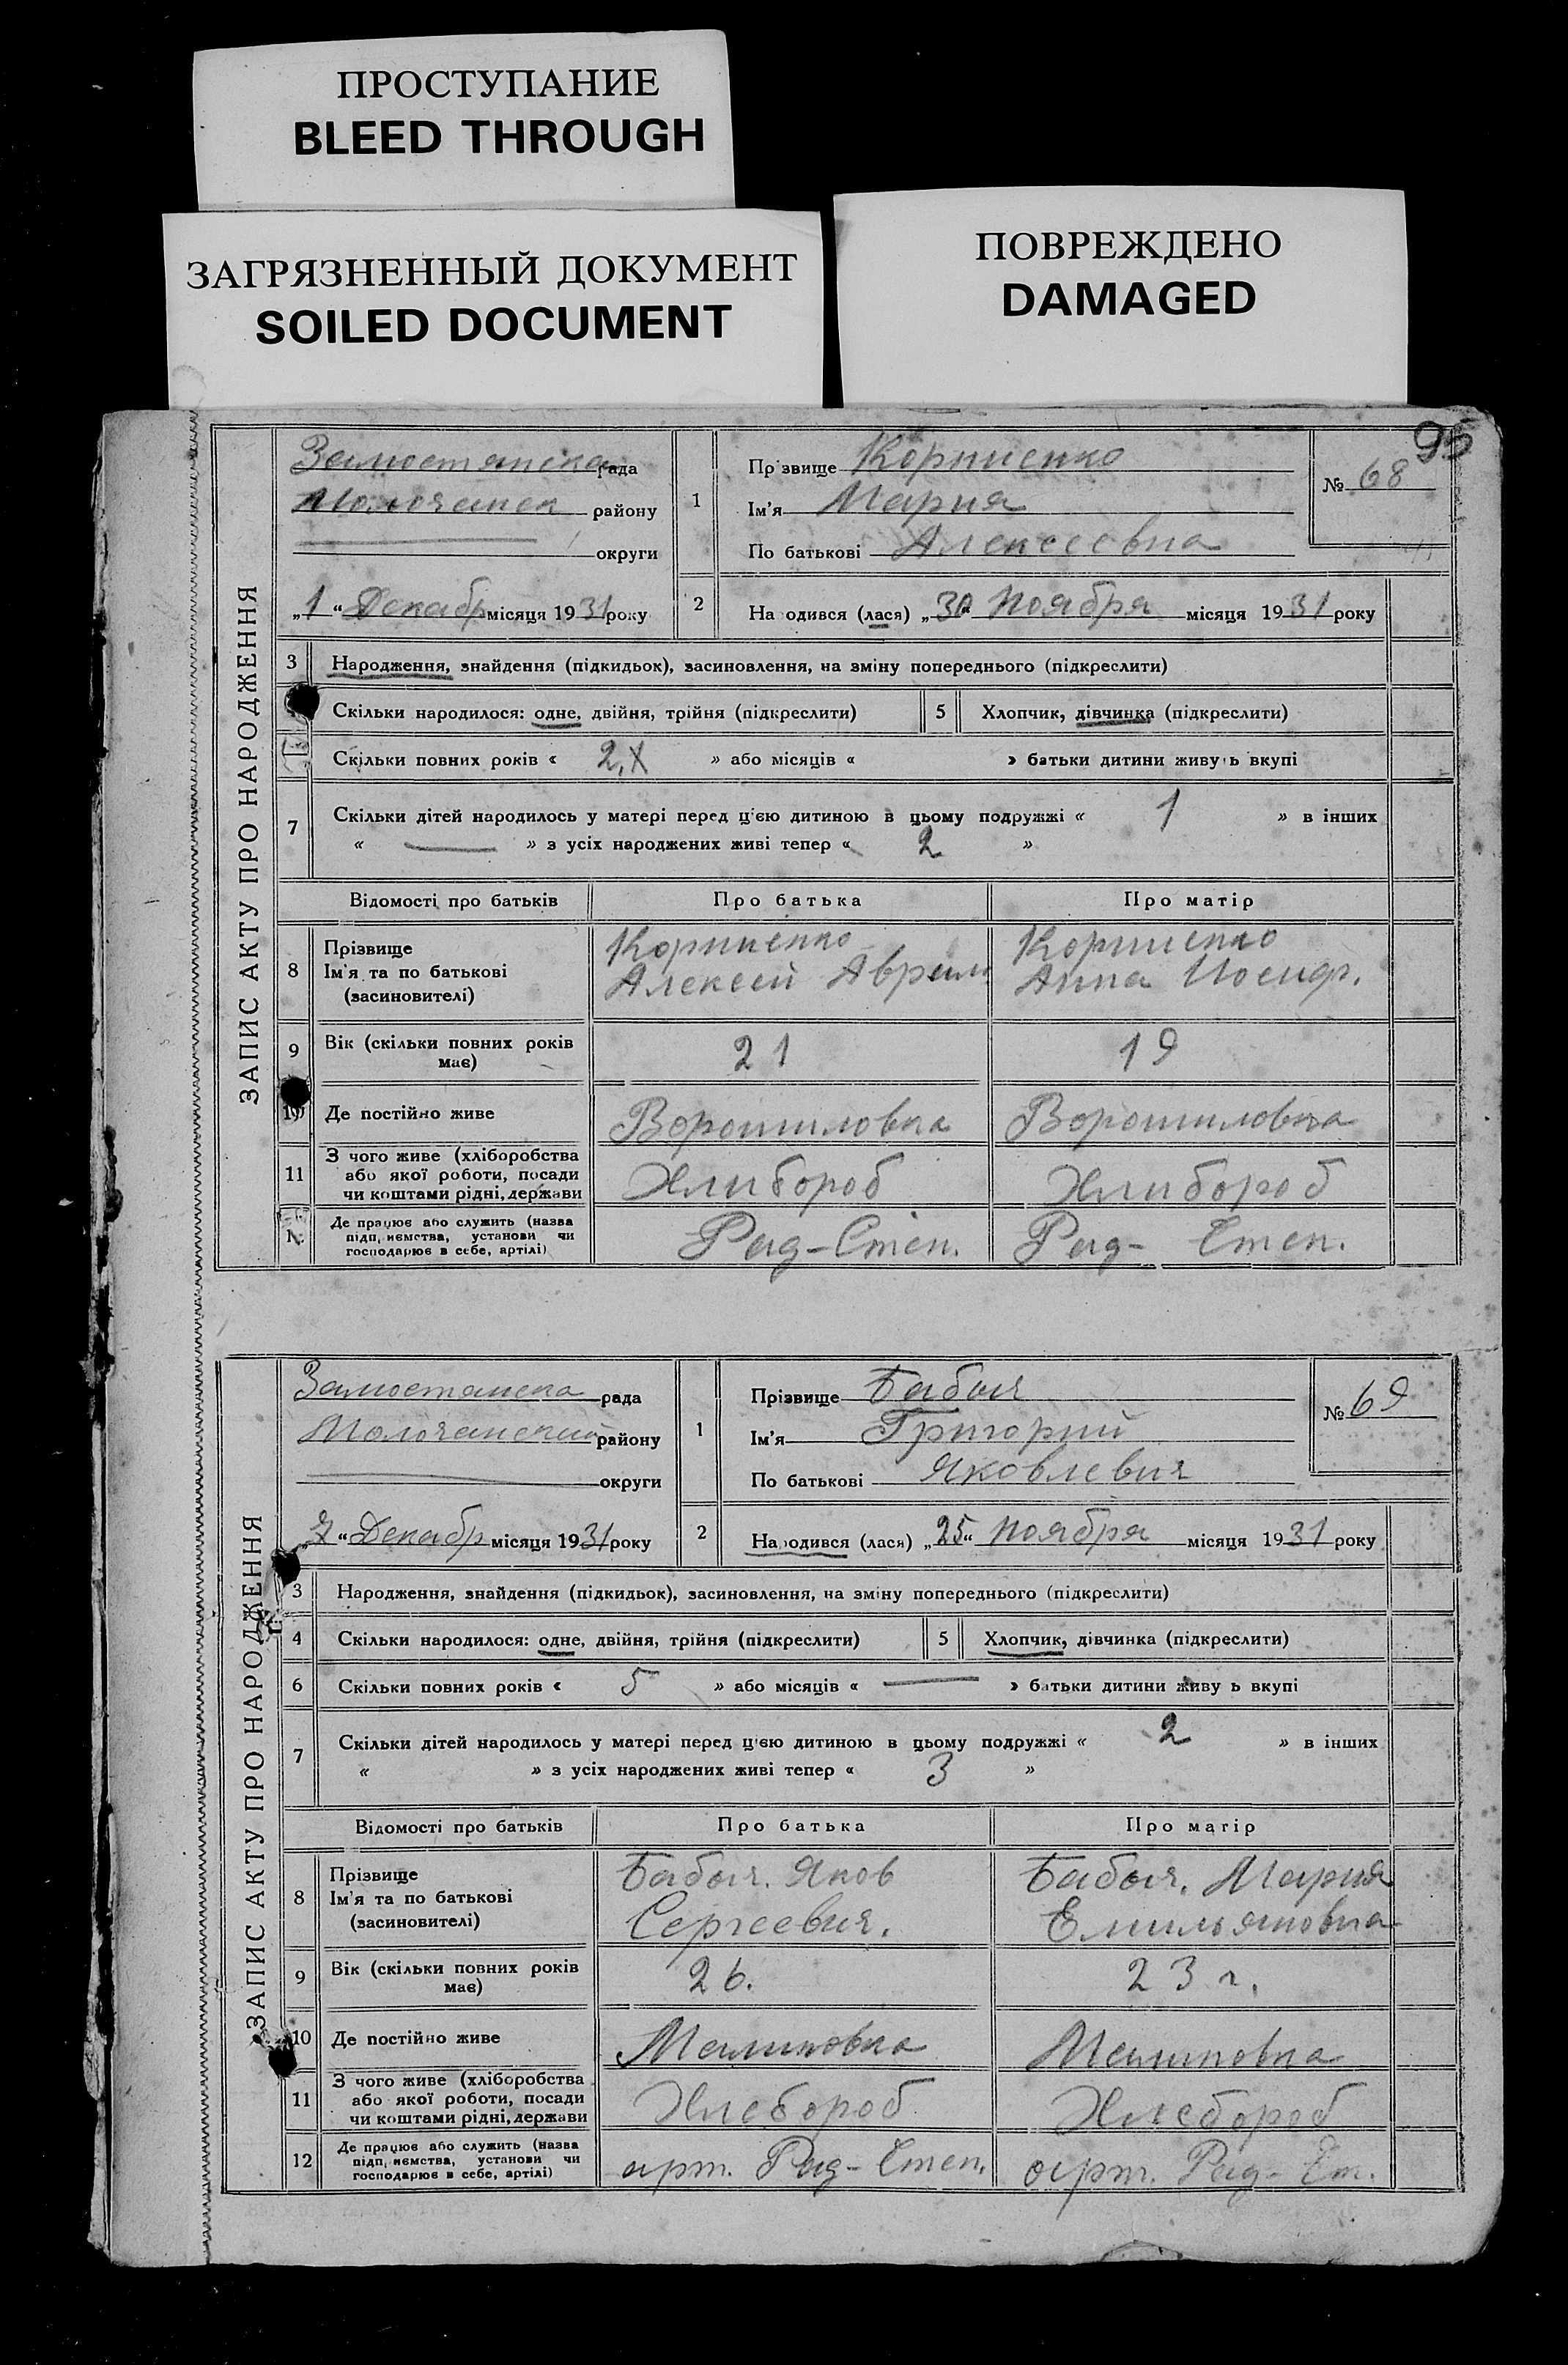 ПРОСТУПАНИЕ
BLEED THROUGH
ЗАГРЯЗНЕННЫЙ ДОКУМЕНТ
SOILED DOCUMENT
ПОВРЕЖДЕНО
DAMAGED
95
ЗАПИС АКТУ ПРО НАРОДЖЕННЯ
Замостянска рада
Молочанск району
округи
„1“ Декабр місяця 1931 року
1
Прізвище Корниенко
Ім'я Мария
По батькові Алексеевна
№ 68
2
Народився (лася) „30“ Ноября місяця 1931 року
3 Народження, знайдення (підкидьок), васиновлення, на зміну попереднього (підкреслити)
Скільки народилося: одне, двійня, трійня (підкреслити) 5 Хлопчик, дівчинка (підкреслити)
Скільки повних років « 2, » або місяців « » батьки дитини живуть вкупі
7 Скільки дітей народилось у матері перед цією дитиною в цьому подружжі « 1 » в інших
« — » з усіх народжених живі тепер « 2 »
Відомості про батьків Про батька Про матір
8 Прізвище Корниенко Корниенко
Ім'я та по батькові Алексей Анна Иосиф.
(васиновителі)
9 Вік (скільки повних років має) 21 19
10 Де постійно живе Ворошиловка Ворошиловка
11 З чого живе (хліборобства
або якої роботи, посади
чи коштами рідні, держави Хлибороб Хлибороб
Де працює або служить (назва
підприємства, установи чи
господарює в себе, артілі) Рад-Степ. Рад- Степ.
ЗАПИС АКТУ ПРО НАРОДЖЕННЯ
Замостянска рада
Молочанский району
округи
“ Декабр місяця 1931 року
1
Прізвище Бабыч
Ім'я Григорий
По батькові Яковлевич
№ 69
2
Народився (лася) „25“ Ноября місяця 1931 року
3 Народження, знайдення (підкидьок), васиновлення, на зміну попереднього (підкреслити)
4 Скільки народилося: одне, двійня, трійня (підкреслити) 5 Хлопчик, дівчинка (підкреслити)
6 Скільки повних років « 5 » або місяців « — » батьки дитини живуть вкупі
7 Скільки дітей народилось у матері перед цією дитиною в цьому подружжі « 2 » в інших
« » з усіх народжених живі тепер « 3 »
Відомості про батьків Про батька Про матір
8 Прізвище Бабыч. Яков Бабыч. Мария
Ім'я та по батькові Сергеевич. Емильяновна
(васиновителі)
9 Вік (скільки повних років має) 26. 23 г.
10 Де постійно живе Малиновка Малиновка
11 З чого живе (хліборобства
або якої роботи, посади
чи коштами рідні, держави Хлебороб Хлебороб
12 Де працює або служить (назва
підприємства, установи чи
господарює в себе, артілі) арт. Рад-Степ. арт. Рад-Ст.